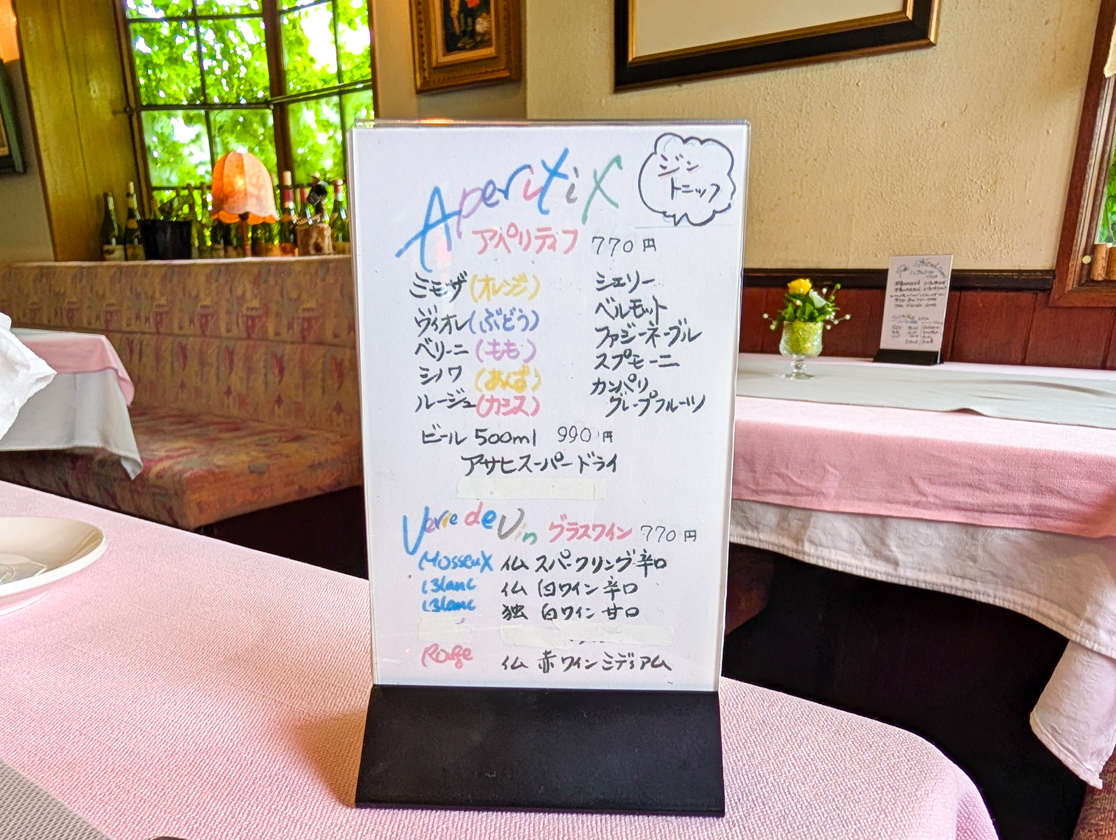 Aperitif
ジン
トニック
アペリティフ 770円
ミモザ(オレンジ)
ヴィオレ(ぶどう)
ベリーニ(もも)
シノワ(あんず)
ルージュ(カシス)
シェリー
ベルモット
ファジーネーブル
スプモーニ
カンパリ
グレープフルーツ
ビール 500ml 990円
アサヒスーパードライ
Verre de Vin グラスワイン 770円
Mosseux 仏 スパークリング辛口
Blanc 仏 白ワイン 辛口
Blanc 独 白ワイン 甘口
Rouge 仏 赤ワイン ミディアム